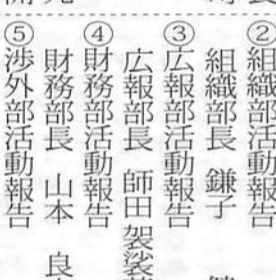 ②組織部活動報告
組織部長 鎌子
③広報部活動報告
広報部長 師田 袈裟
④財務部活動報告
財務部長 山本 良
⑤渉外部活動報告